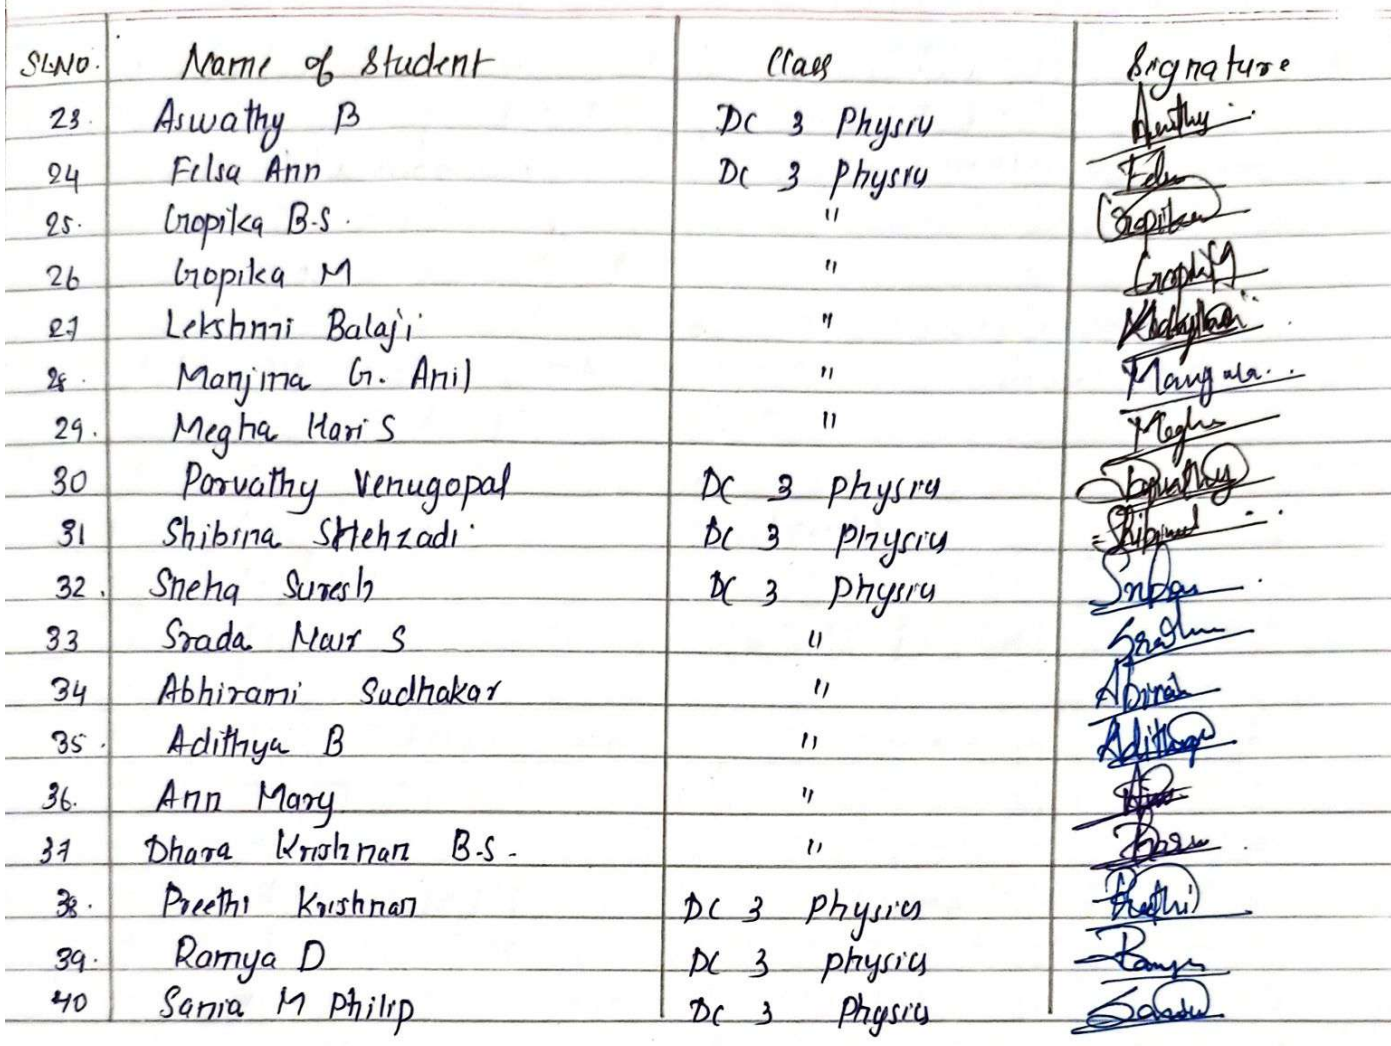 SL.NO. Name of Student Class Signature
23. Aswathy B DC 3 Physics Aswathy
24 Felsa Ann DC 3 Physics
25. Gopika B.S. " Gopika
26 Gopika M " Gopika M
27 Lekshmi Balaji "
28. Manjima G. Anil "
29. Megha Hari S " Megha
30 Parvathy Venugopal DC 3 Physics Parvathy
31 Shibina SHehzadi DC 3 Physics
32. Sneha Suresh DC 3 Physics
33 Srada Nair S "
34 Abhirami Sudhakar "
35. Adithya B " Adithya
36. Ann Mary "
37 Dhara Krishnan B.S. "
38. Preethi Krishnan DC 3 Physics Preethi
39. Ramya D DC 3 physics Ramya
40 Sania M Philip DC 3 Physics